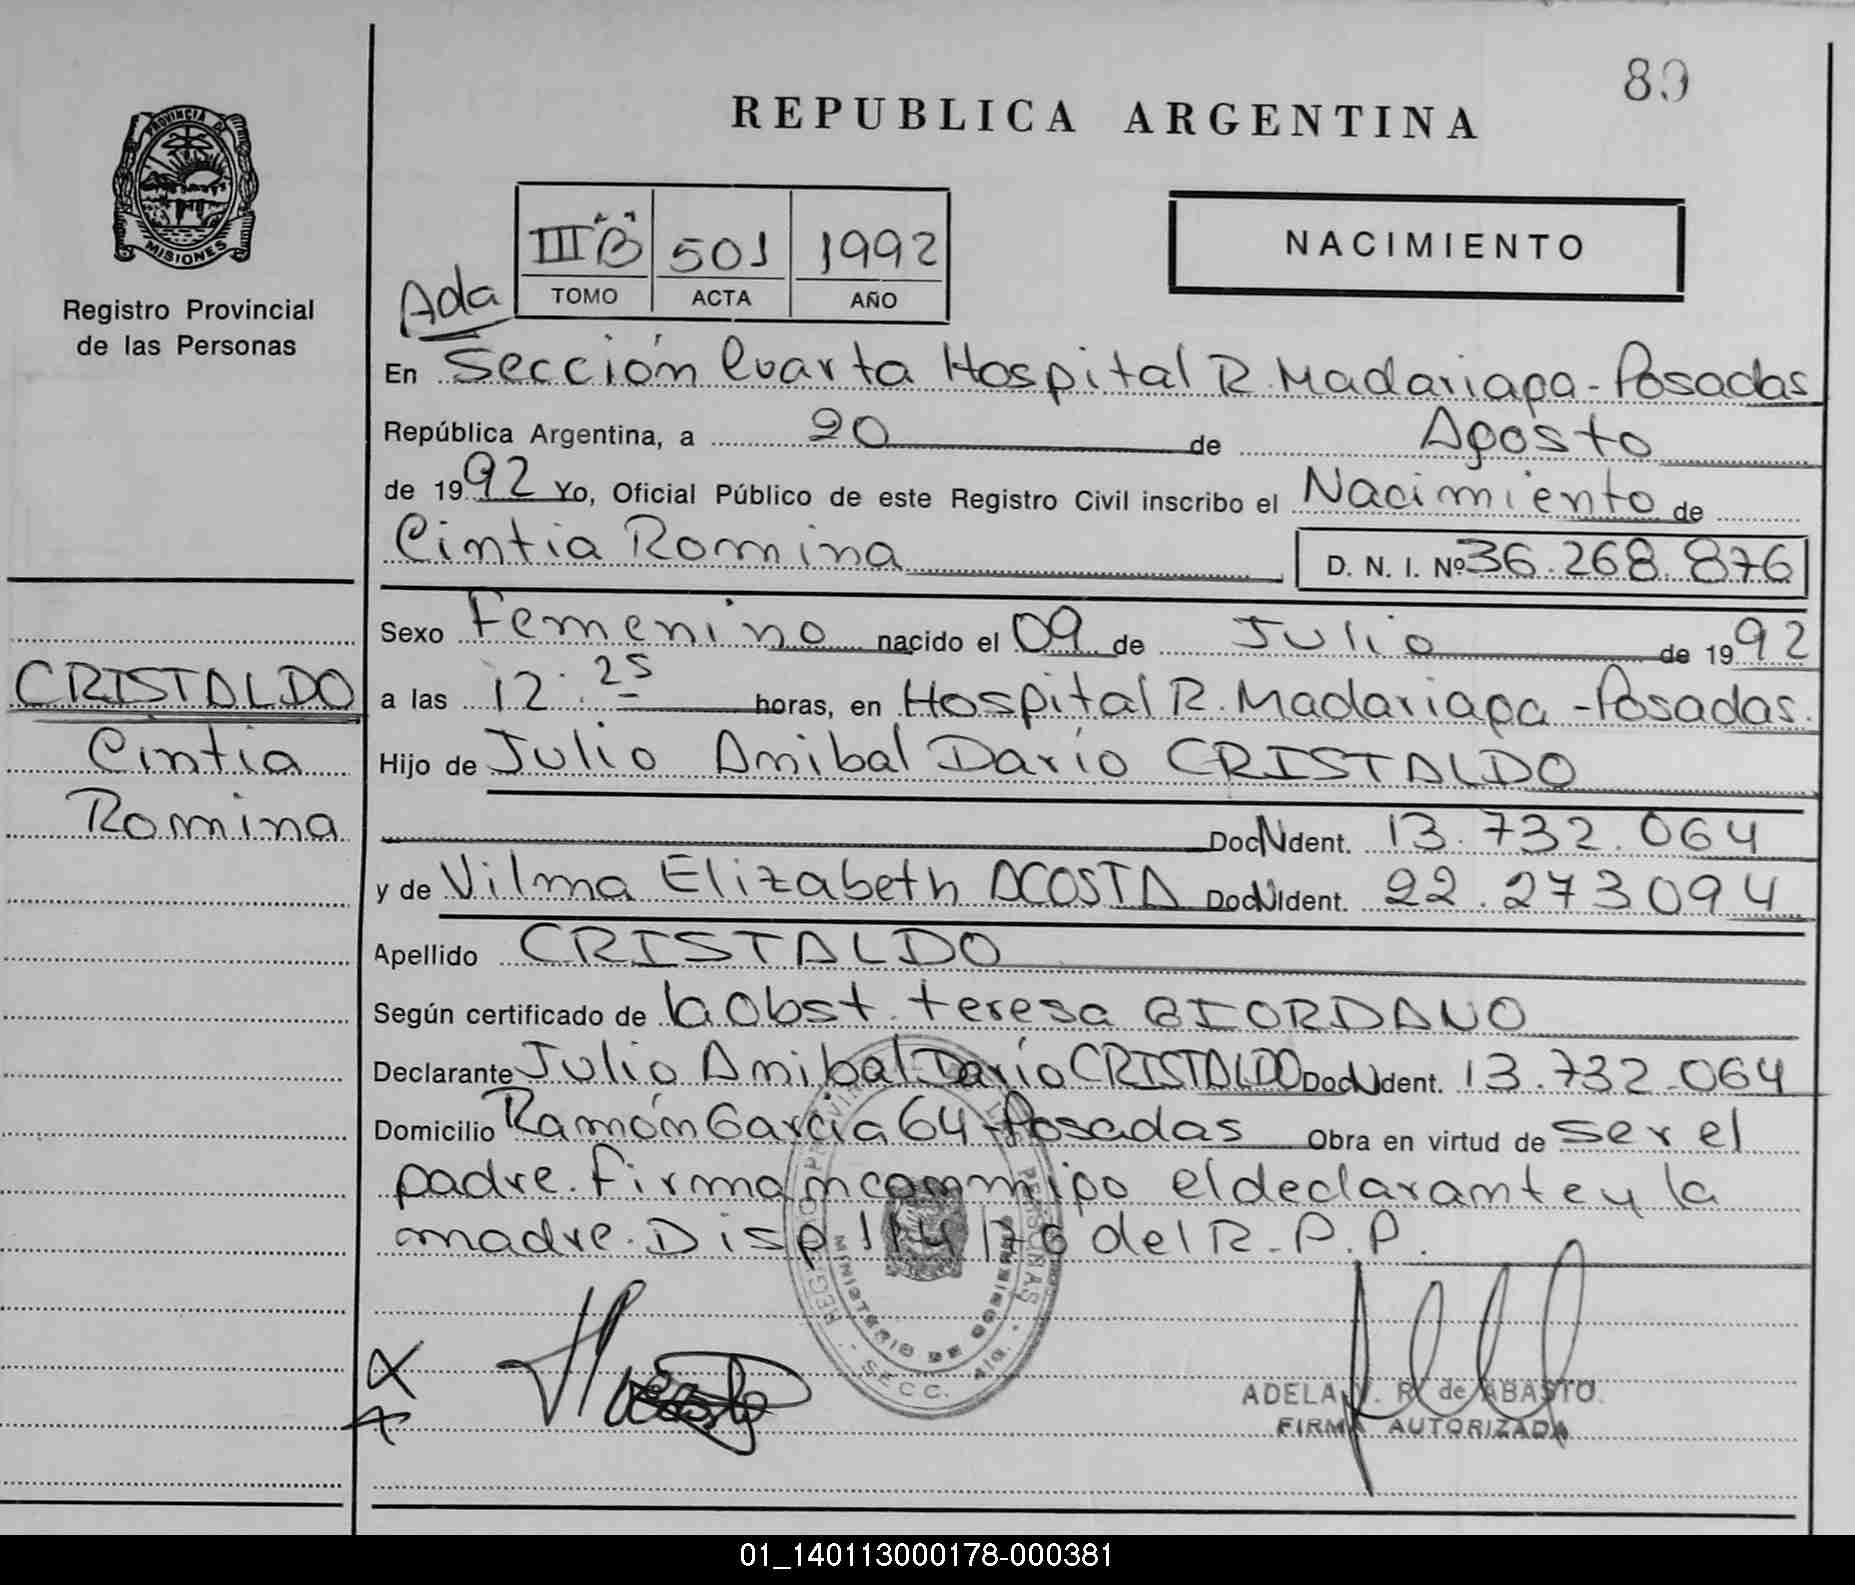 89
REPUBLICA ARGENTINA
PROVINCIA DE
MISIONES
Registro Provincial
de las Personas
III "B" 501 1992
TOMO ACTA AÑO
NACIMIENTO
Ada
En Sección Cuarta Hospital R. Madariaga - Posadas
República Argentina, a 20 de Agosto
de 1992 Yo, Oficial Público de este Registro Civil inscribo el Nacimiento de
Cintia Romina D. N. I. Nº 36.268.876
Sexo Femenino nacido el 09 de Julio de 1992
CRISTALDO
Cintia
Romina
a las 12:25 horas, en Hospital R. Madariaga - Posadas.
Hijo de Julio Anibal Darío CRISTALDO
Doc N Ident. 13.732.064
y de Vilma Elizabeth ACOSTA Doc N Ident. 22.273094
Apellido CRISTALDO
Según certificado de la Obst. teresa GIORDANO
Declarante Julio Anibal Darío CRISTALDO Doc N Ident. 13.732.064
Domicilio Ramón García 64 - Posadas Obra en virtud de ser el
padre. Firman conmigo el declarante y la
madre. Disp 114/76 del R.P.P.
REGISTRO PROVINCIAL DE LAS PERSONAS
MINISTERIO DE GOBIERNO
SECC. 4ta.
ADELA V. R. de ABASTO.
FIRMA AUTORIZADA
01_140113000178-000381